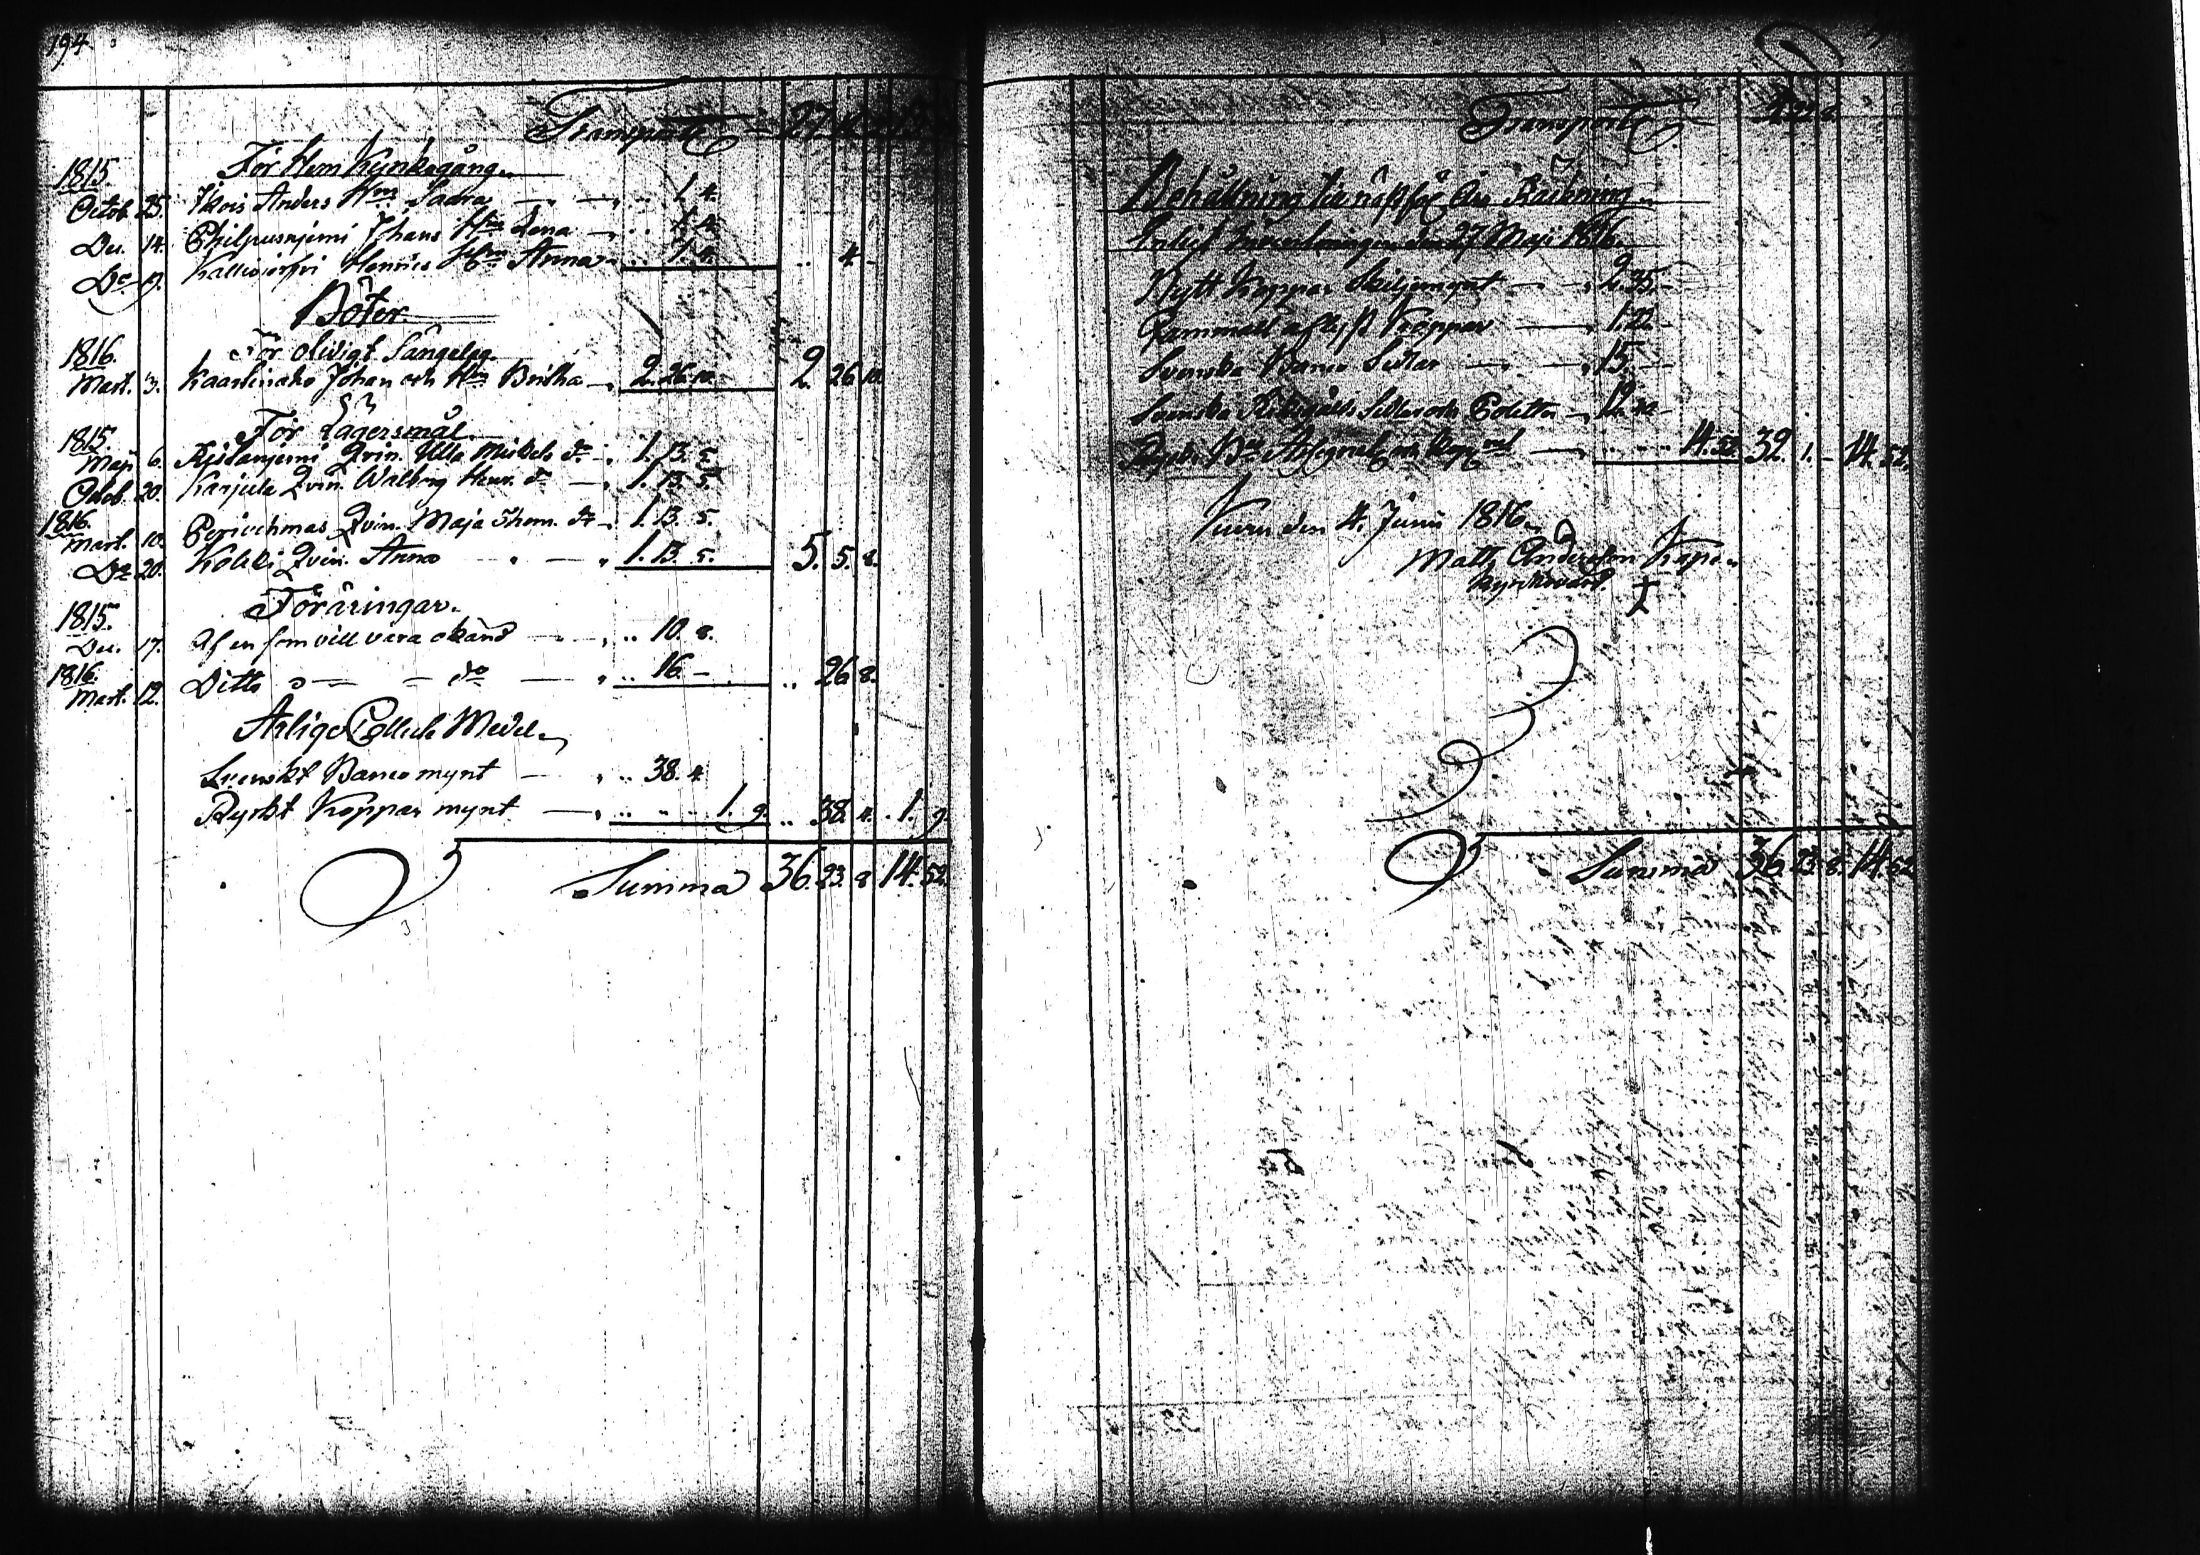 194
Transport 27
För Hem Kyrkogång
1815.
Octob. 25. Anders Hru 1. 4.
Dec. 14. Philpusnjemi Johans Hru Lena 1. 4.
Do 19. Henrics Hru Anna 1. 4. .. 4. -
Böter
1816. För olidigt Sängelag
Mart. 3. Johan och Hru Britha 2. 26. 10. 2. 26. 10.
För Lägersmål
1815.
Maji 6. Qvin. Ulla Mickels dr 1. 13. 5.
Octob. 20. Karjula Qvin. Walborg Henr. dr 1. 13. 5.
1816.
Mart. 10. Qvin. Maja Thom. dr 1. 13. 5.
Do 20. Kolki Qvin. Anna 1. 13. 5. 5. 5. 8.
Föräringar
1815.
Dec. 17. Af en som vill vara okänd .. 10. 8.
1816.
Mart. 12. Ditto do .. 16. - .. 26. 8.
Årlige Collect Medel
Svenskt Banco mynt .. 38. 4.
Ryskt Koppar mynt .. 1. 9. .. 38. 4. 1. 9.
Summa 36. 23. 8. 14. 52.
Transport 4. 22. 8.
Behållning til näst följ. Års Räkning
Enligt Inventeringen den 27 Maji 1816.
Nytt Koppar Skiljemynt 2. 35. -
Gammalt Koppar 1. 22. -
Svenska Banco Sedlar 15. -
Svenska Riksgälds Sedlar och Poletter 12.
14. 52. 32. 1. - 14. 52.
den 4. Junii 1816.
Matts Andersson
Kyrkovärd.
Summa 36. 23. 8. 14. 52